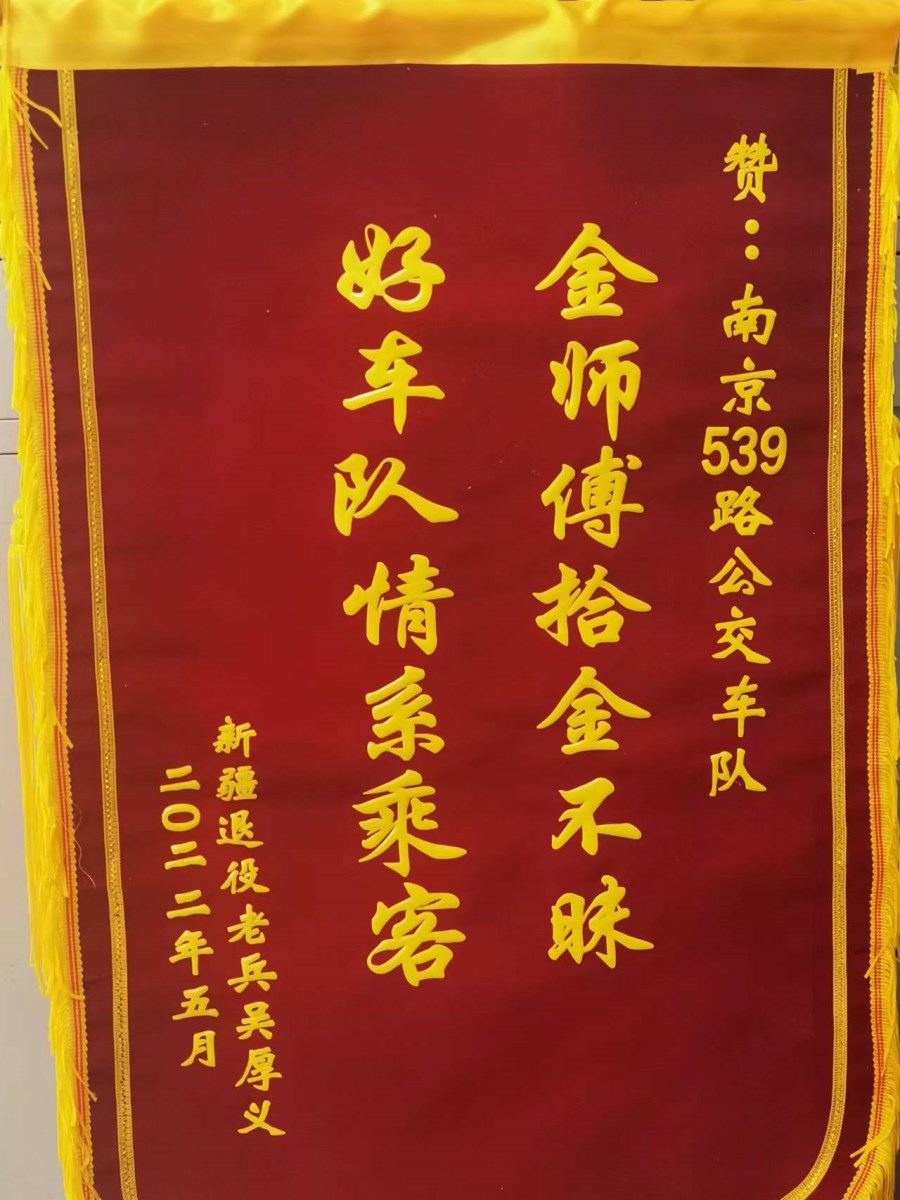 赞：南京539路公交车队
金师傅拾金不昧
好车队情系乘客
新疆退役老兵吴厚义
二〇二二年五月